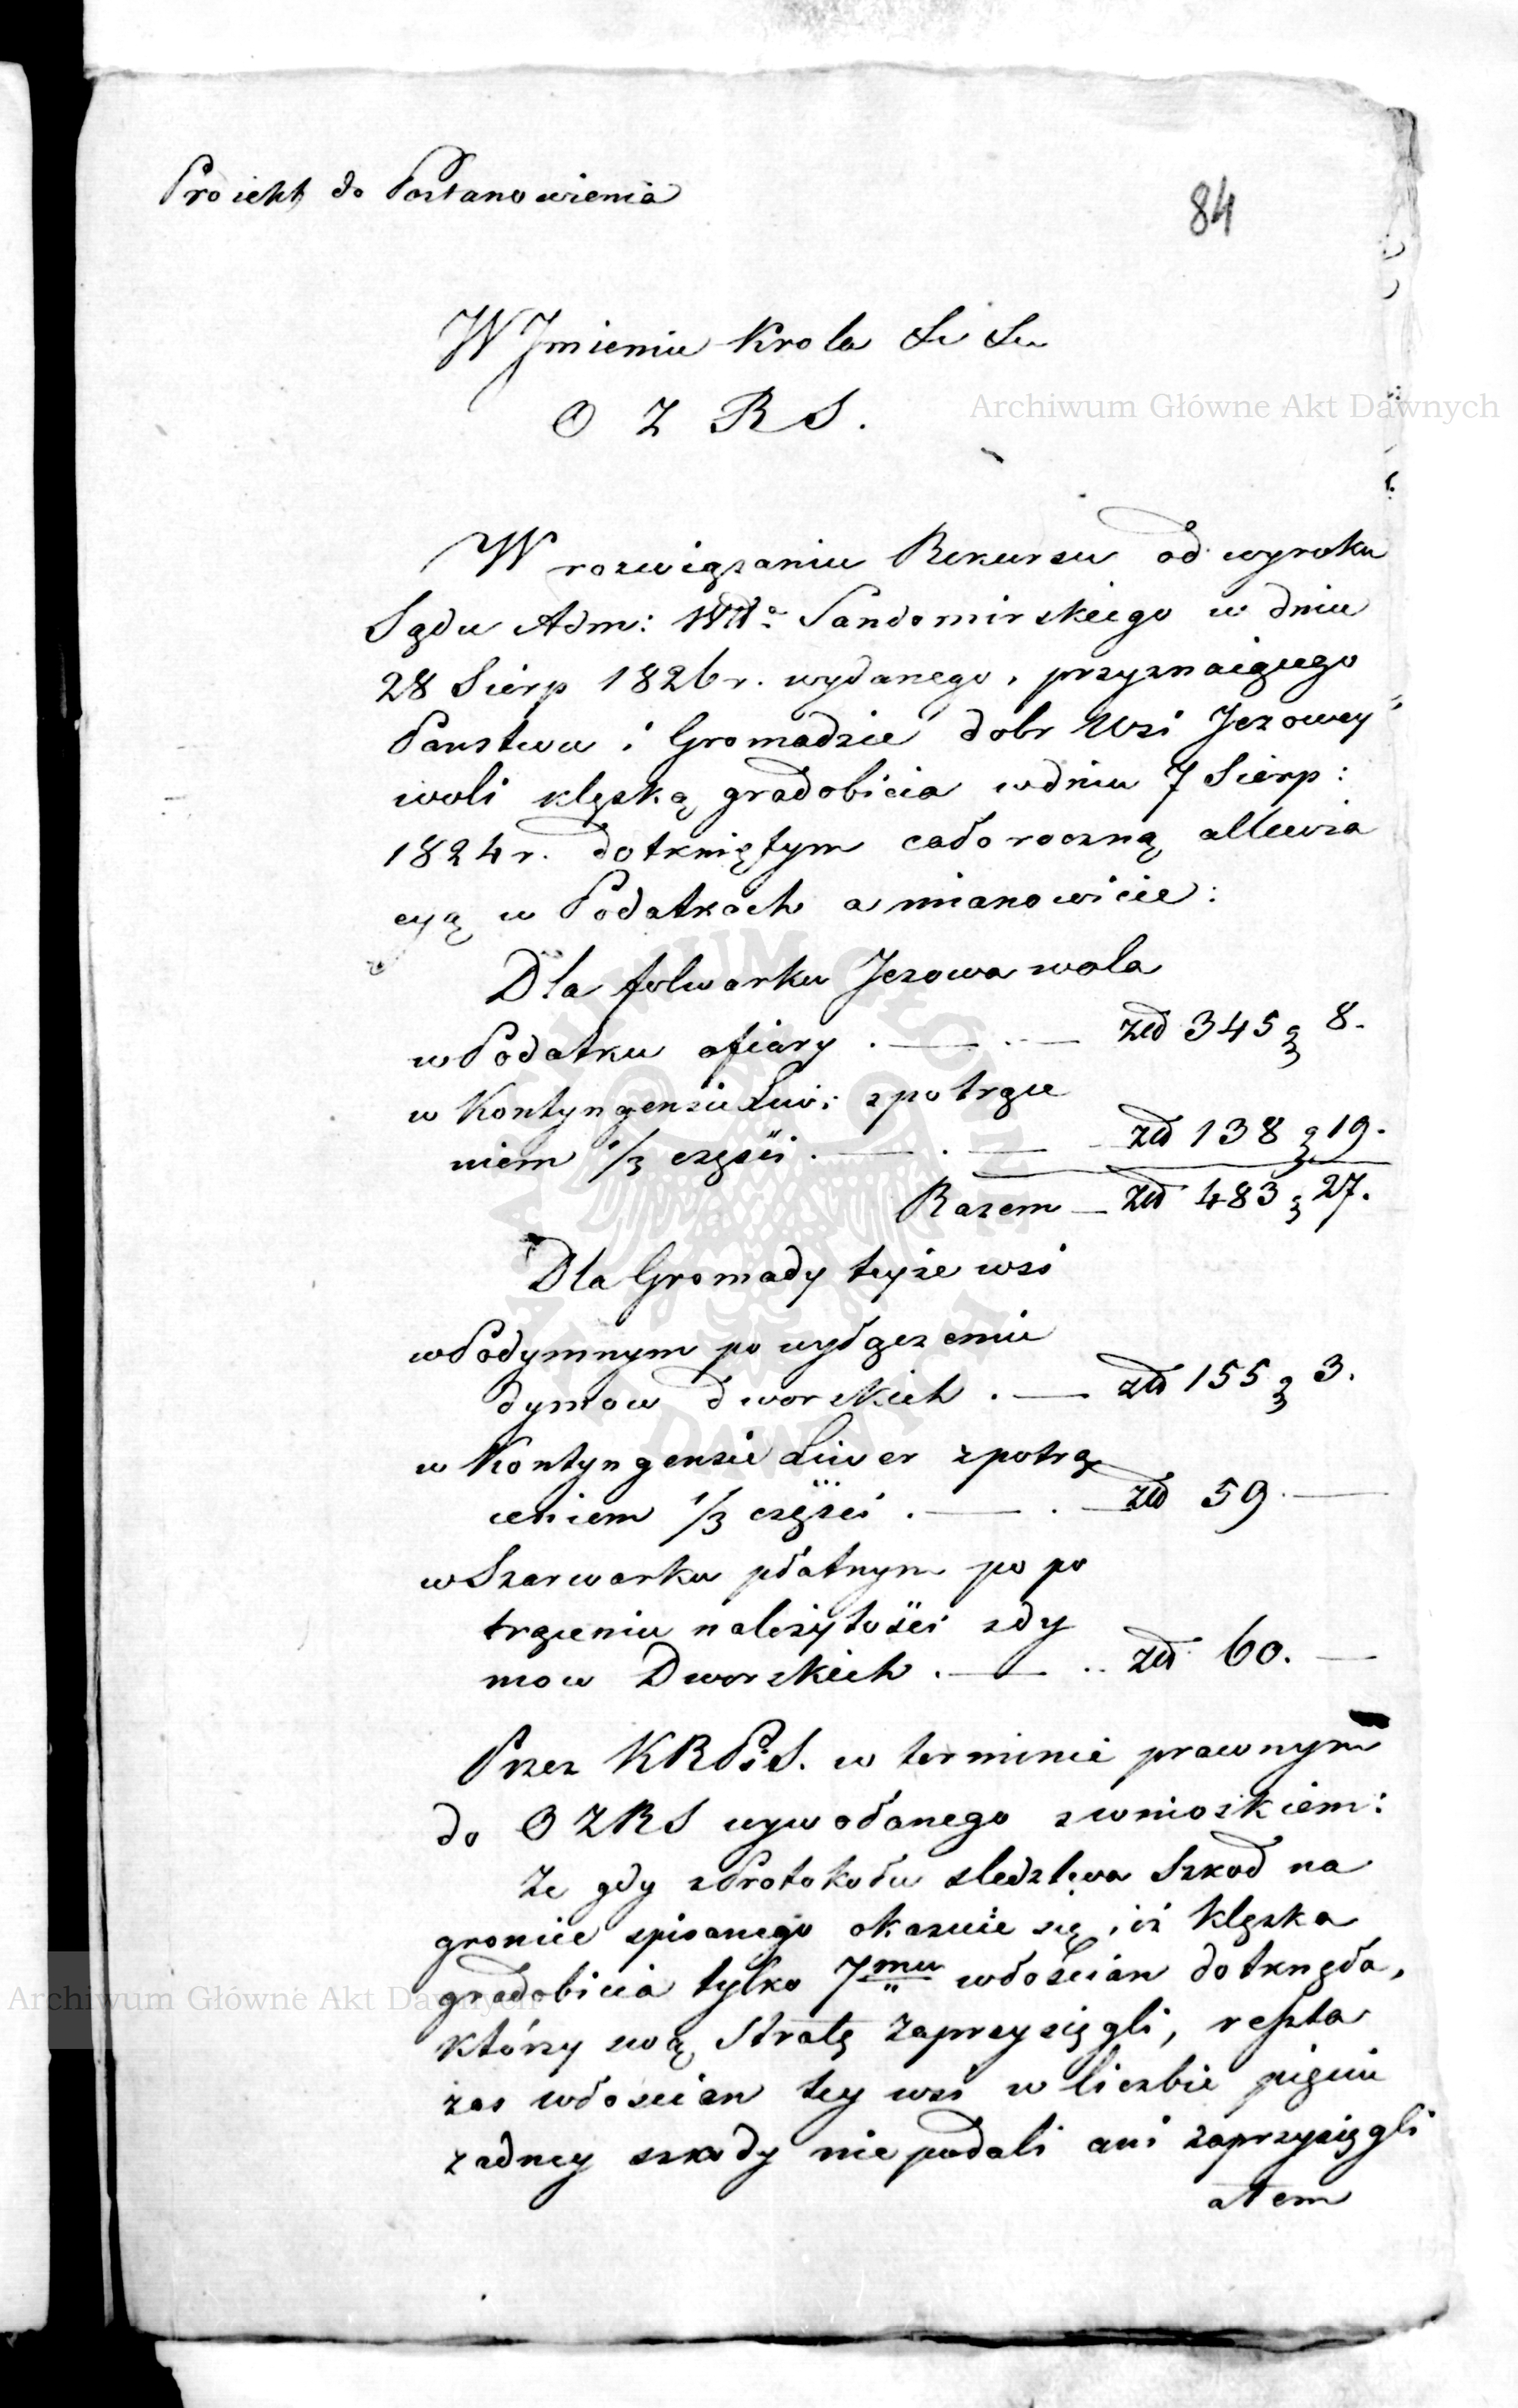 Proiekt do Postanowienia
84
W Jmieniu Krola &c &c
O Z R S.
W rozwiązaniu Rekursu od wyroku
Sądu Adm: Wda Sandomirskiego w dniu
28 Sierp 1826 r. wydanego, przyznaiącego
Panstwu i Gromadzie dobr Wsi Jezowey
woli klęską gradobicia w dniu 7 Sierp:
1824 r. dotkniętym całoroczną allewia
cyą w Podatkach a mianowicie:
Dla folwarku Jezowa wola
w Podatku ofiary . — . — zł 345 g 8.
w Kontyngensie Liw: z potrące
niem 1/3 części . — . — zł 138 g 19.
Razem — zł 483 g 27.
Dla Gromady teyże wsi
w Podymnym po wyłączeniu
dymow dworskich . — zł 155 g 3.
w Kontyngensie Liwer z potrą
ceniem 1/3 części . — . — zł 59. —
w Szarwarku płatnym po po
trąceniu należytości z dy
mow Dworskich . — .. zł 60. —
Przez KRPiS. w terminie prawnym
do OZRS wywołanego z wnioskiem:
Ze gdy z Protokołu sledztwa Szkod na
groncie spisanego okazuie się, iż klęska
gradobicia tylko 7mu włoscian dotknęła,
którzy swą Stratę zaprzysięgli, reszta
zas włoscian tey wsi w liczbie pięciu
zadney szkody nie podali ani zaprzysięgli
atem
Archiwum Główne Akt Dawnych
Archiwum Główne Akt Dawnych
ARCHIWUM GŁÓWNE AKT DAWNYCH